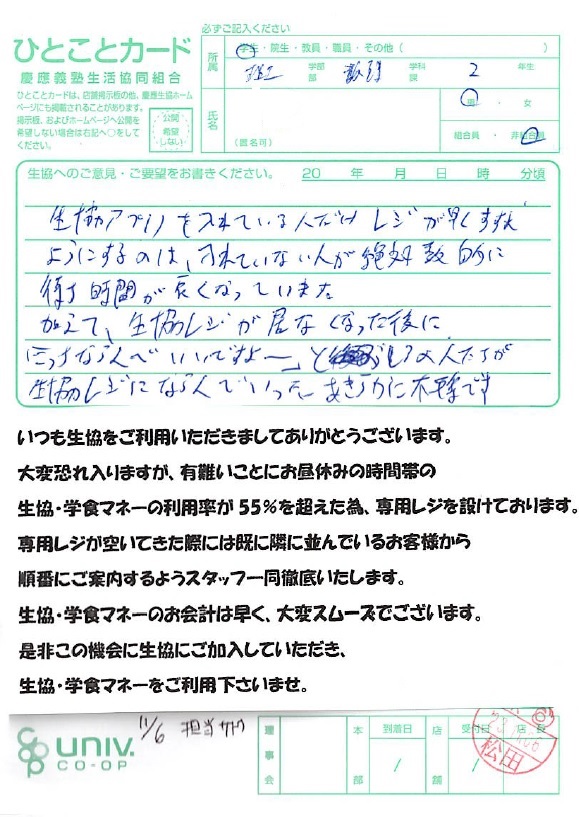 必ずご記入ください
ひとことカード
慶應義塾生活協同組合
ひとことカードは、店舗掲示板の他、慶應生協ホーム
ページにも掲載されることがあります。
掲示板、およびホームページへ公開を
希望しない場合は右記へ○をして
ください。
公開
希望
しない
所属
学生・院生・教員・職員・その他( )
理工 学部 部 学科 課 2 年生
氏名
(匿名可)
男・女
組合員・非組合員
生協へのご意見・ご要望をお書きください。 20 年 月 日 時 分頃
生協アプリを入れている人だけレジが早くすすむ
ようにするのは、入れていない人が絶対数的に
待つ時間が長くなっています。
加えて、生協レジが居なくなった後に
「こっちならんでいいですよー」と うしろの人たちが
生協レジにならんでいった。あきらかに不幸です
いつも生協をご利用いただきましてありがとうございます。
大変恐れ入りますが、有難いことにお昼休みの時間帯の
生協・学食マネーの利用率が55%を超えた為、専用レジを設けております。
専用レジが空いてきた際には既に隣に並んでいるお客様から
順番にご案内するようスタッフ一同徹底いたします。
生協・学食マネーのお会計は早く、大変スムーズでございます。
是非この機会に生協にご加入していただき、
生協・学食マネーをご利用下さいませ。
11/6 担当サトウ
univ.
CO-OP
理事会
本部
到着日
/
店舗
受付日
/
店長
松田